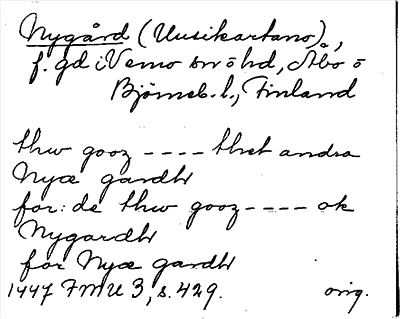 Nygård (Uusikartano),
f. gd i Vemo sn o hd, Åbo o
Björneb. l., Finland
thw gooz ---- thet andra
Nyæ gardh
for: de thw gooz ---- ok
Nygardh
for Nyæ gardh
1447 FMU 3, s. 429. orig.